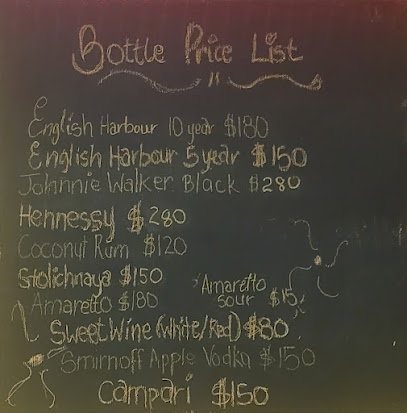 Bottle Price List
English Harbour 10 year $180
English Harbour 5 year $150
Johnnie Walker Black $280
Hennessy $280
Coconut Rum $120
Stolichnaya $150
Amaretto $180
Amaretto
sour $15
Sweet Wine (White/Red) $80
Smirnoff Apple Vodka $150
Campari $150